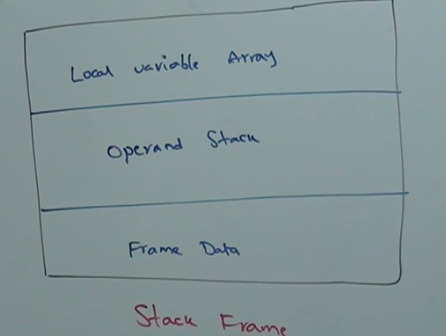 Local variable Array
Operand Stack
Frame Data
Stack Frame